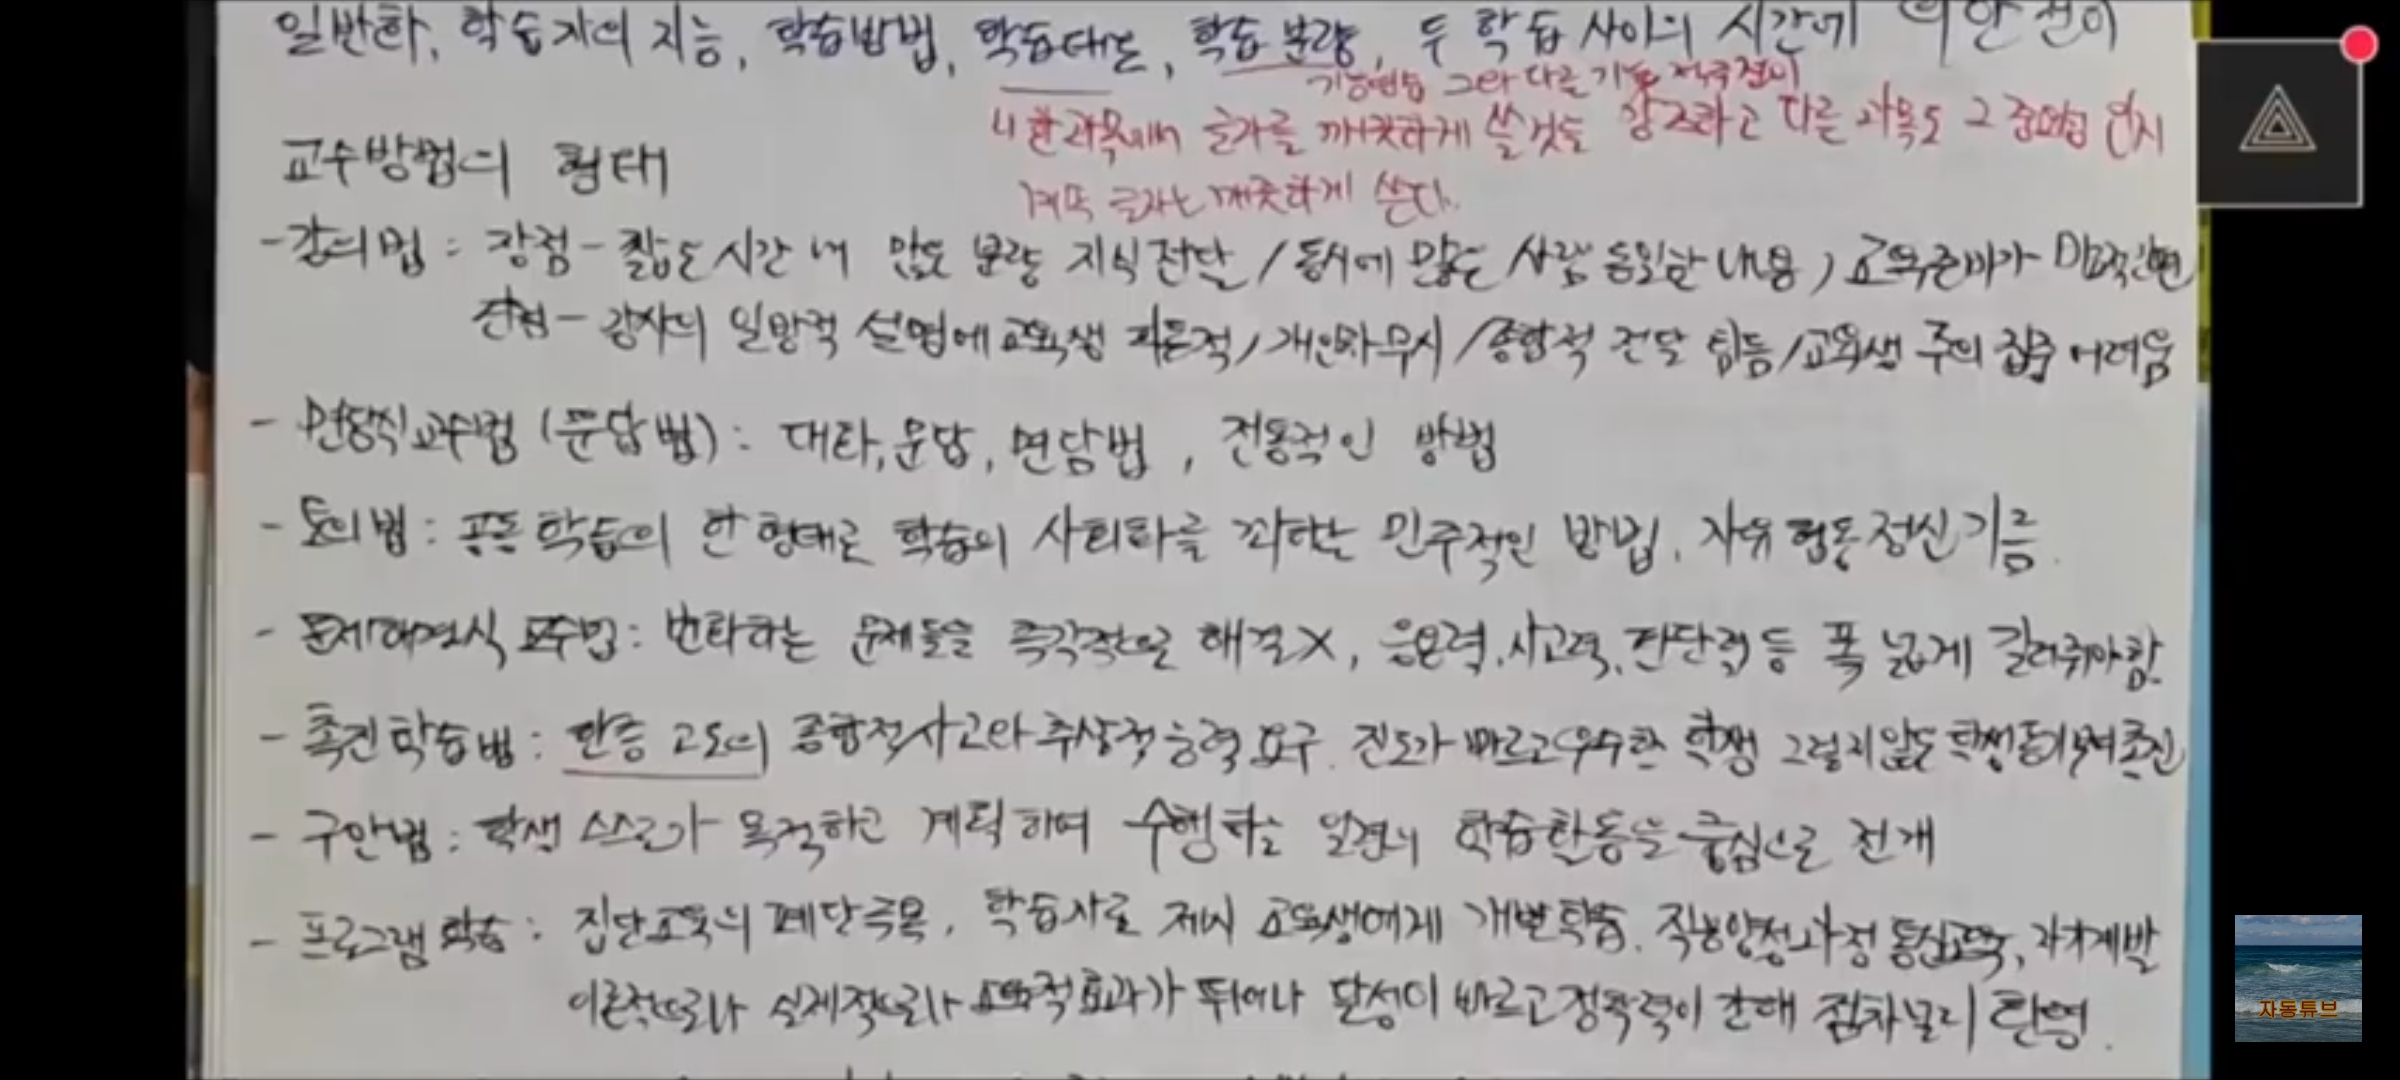 일반화, 학습자의 지능, 학습방법, 학습태도, 학습 분량, 두 학습 사이의 시간에 의한 전이
기능연습 그와 다른 기능 전이
한과목에서 글자를 깨끗하게 쓸것도 강조하고 다른 과목도 그 중요성 인지
글자는 깨끗하게 쓴다.
교수방법의 형태
-강의법 : 장점 - 짧은 시간 내 많은 분량 지식전달 / 동시에 많은 사람 동일한 내용 / 교육준비가
단점 - 강사의 일방적 설명에 교육생 피동적 / 개인차 무시 / 종합적 전달 힘듬 / 교육생 주의 집중 어려움
- 문답식교수법 (문답법) : 대화, 문답, 면담법 , 전통적인 방법
- 토의법 : 공동 학습의 한 형태로 학습의 사회화를 꾀하는 민주적인 방법. 자유 협동정신 기름.
- 문제해결식 교수법 : 변화하는 문제들을 즉각적으로 해결X, 응용력, 사고력, 판단력 등 폭 넓게 길러줘야함
- 촉진학습법 : 한층 고도의 종합적사고와 추상적능력 요구. 진도가 빠르고 우수한 학생 그렇지않은 학생 촉진
- 구안법 : 학생 스스로가 목적하고 계획하여 수행하는 일련의 학습활동을 중심으로 전개
- 프로그램 학습 : 집단교육의 폐단극복, 학습자료 제시 교육생에게 개별학습. 직능양정과정 통신교육, 자기계발
이론적으로나 실제적으로나 교육적효과가 뛰어나 달성이 빠르고 정확력이 간해 점차널리 활용.
자동튜브